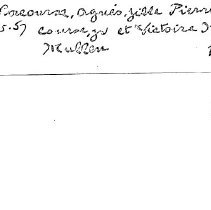 Lacourse, Agnès, fille Pierre
5.5) Course, ju et Victoire
Mullen